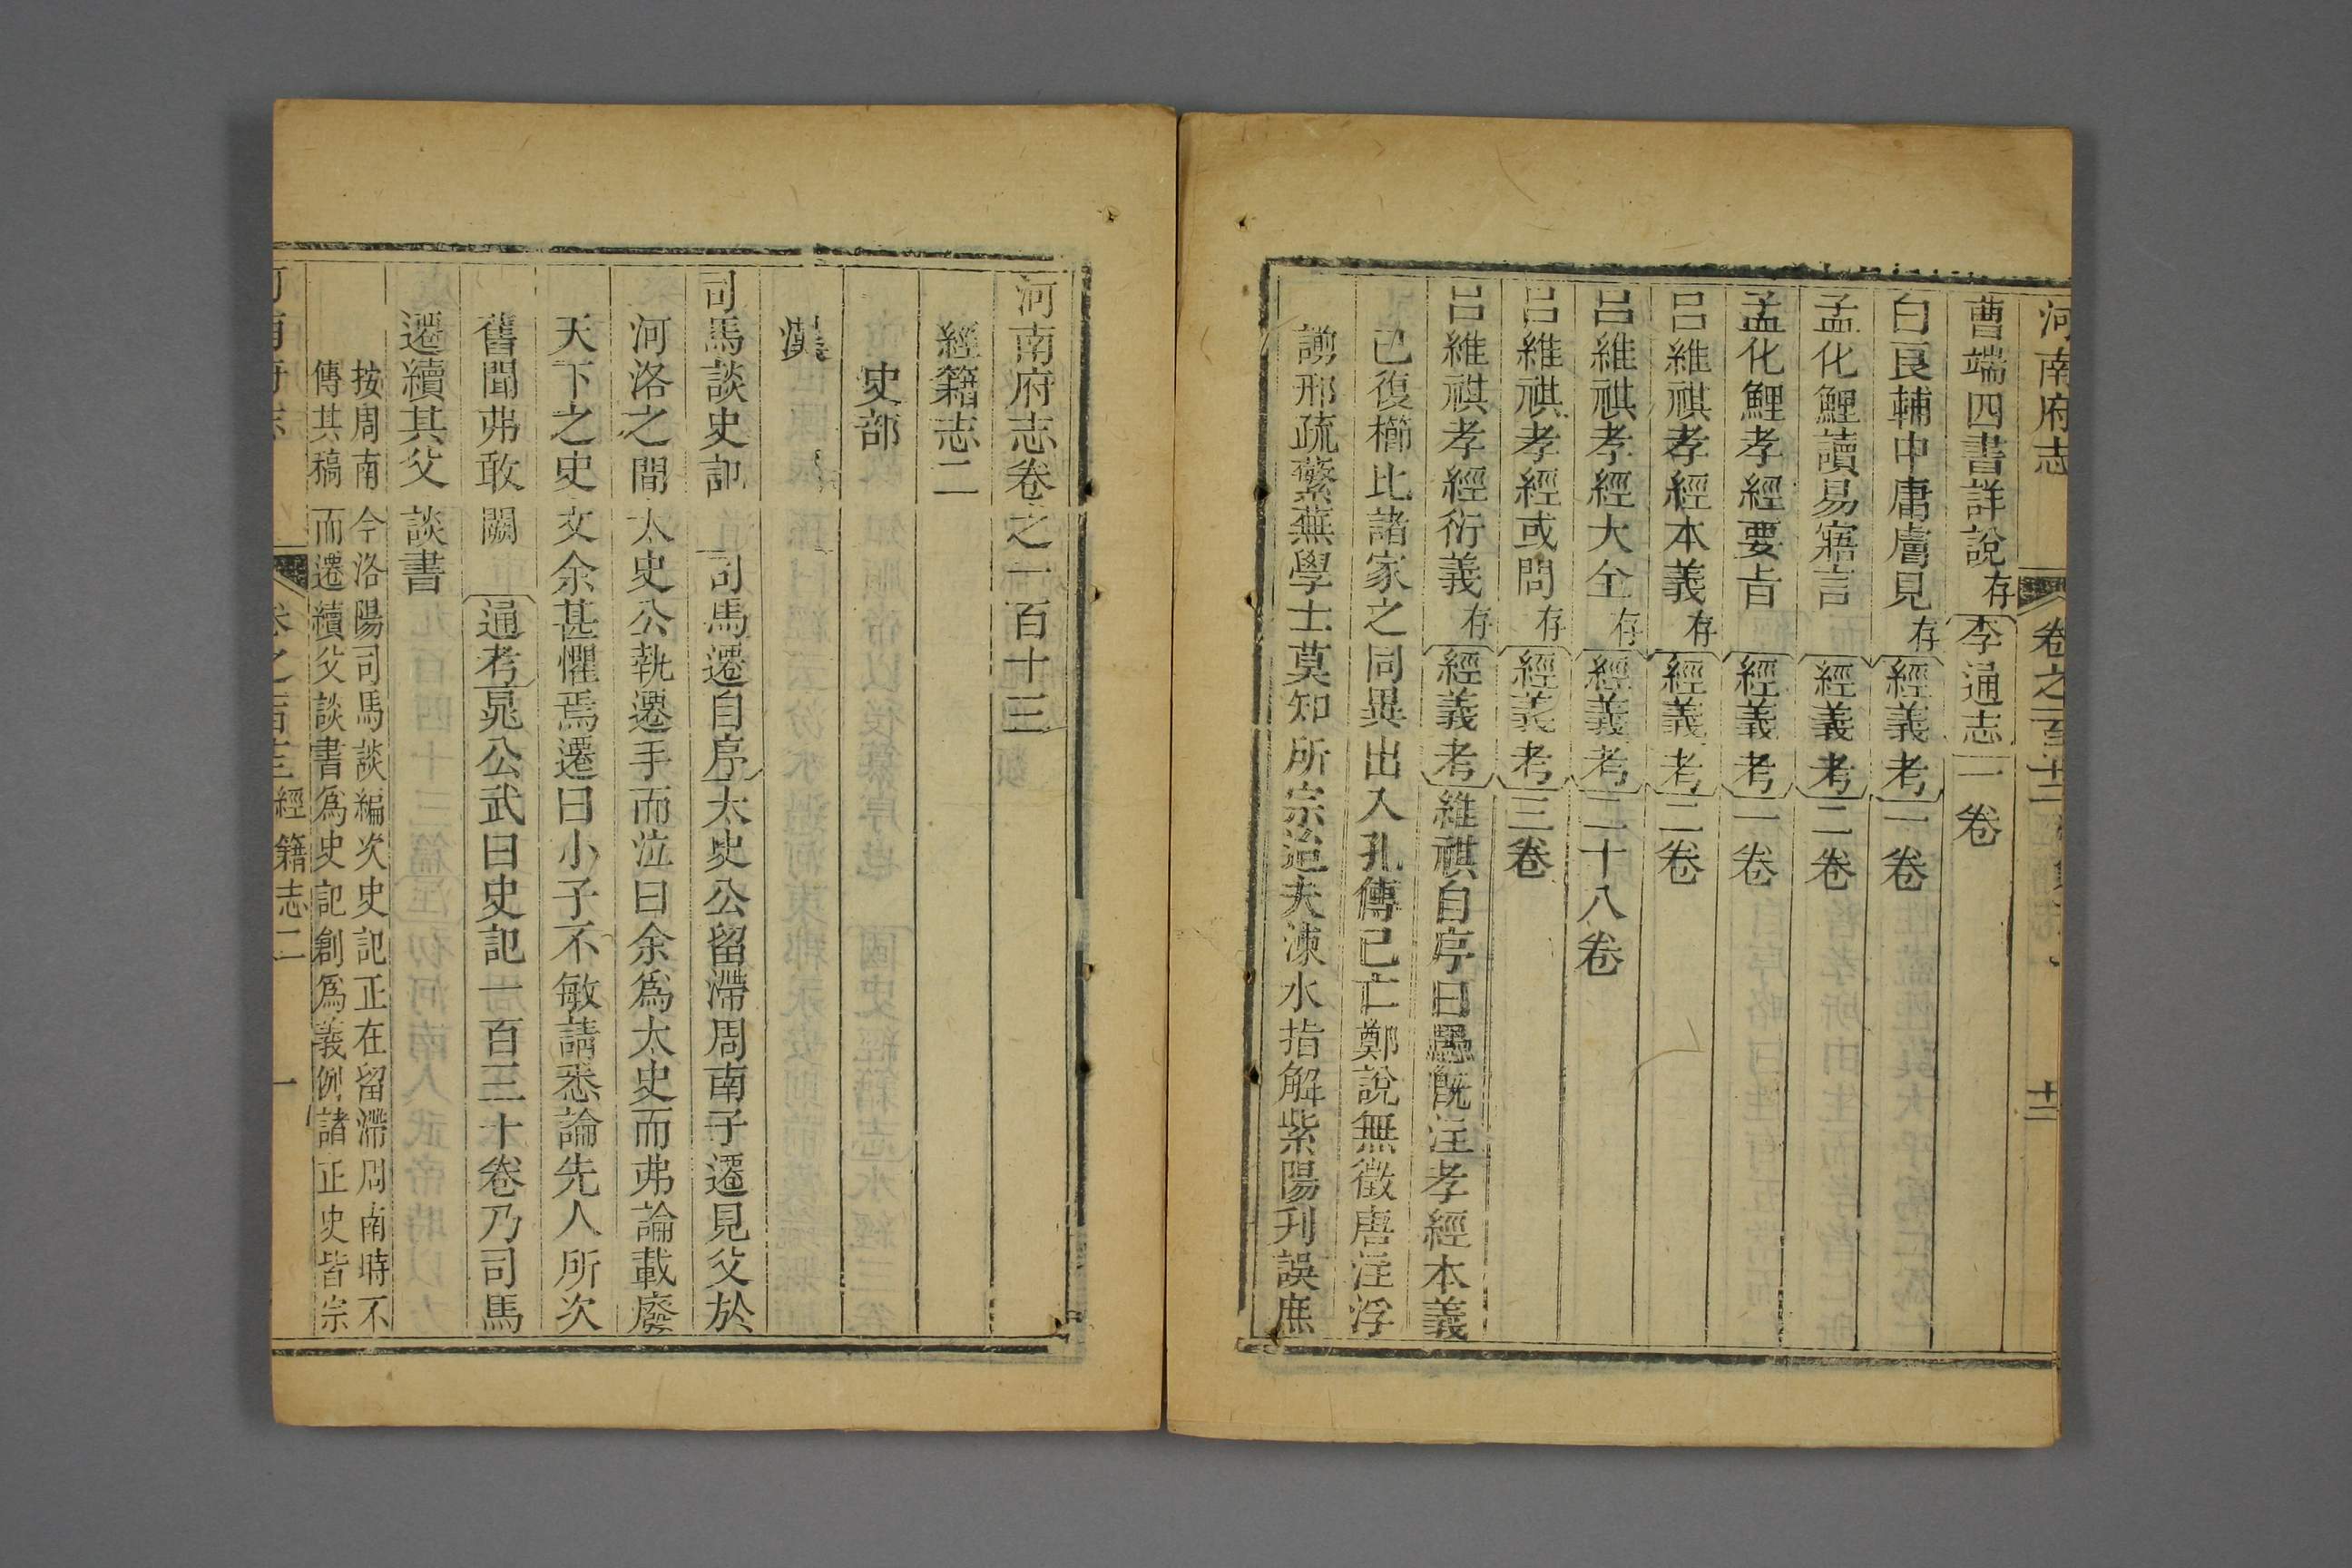 河南府志 卷之一百十二 十三
曹端四書詳說存李通志一卷
白良輔中庸膚見存經義考一卷
孟化鯉讀易寤言 經義考二卷
孟化鯉孝經要旨 經義考一卷
呂維祺孝經本義存經義考二卷
呂維祺孝經大全存經義考二十八卷
呂維祺孝經或問存經義考三卷
呂維祺孝經衍義存經義考維祺自序曰愚旣注孝經本義
已復櫛比諸家之同異出入孔傳已亡鄭說無徵唐注浮
謭邢疏繁蕪學士莫知所宗迨夫涑水指解紫陽刋誤庶
河南府志卷之一百十三
經籍志二
史部
漢
司馬談史記 司馬遷自序太史公留滯周南子遷見父於
河洛之間太史公執遷手而泣曰余爲太史而弗論載廢
天下之史文余甚懼焉遷曰小子不敏請悉論先人所次
舊聞弗敢闕 通考晁公武曰史記一百三十卷乃司馬
遷續其父談書
按周南今洛陽司馬談編次史記正在留滯周南時不
傳其稿而遷續父談書爲史記創爲義例諸正史皆宗
河南府志 卷之一百十三經籍志二 一